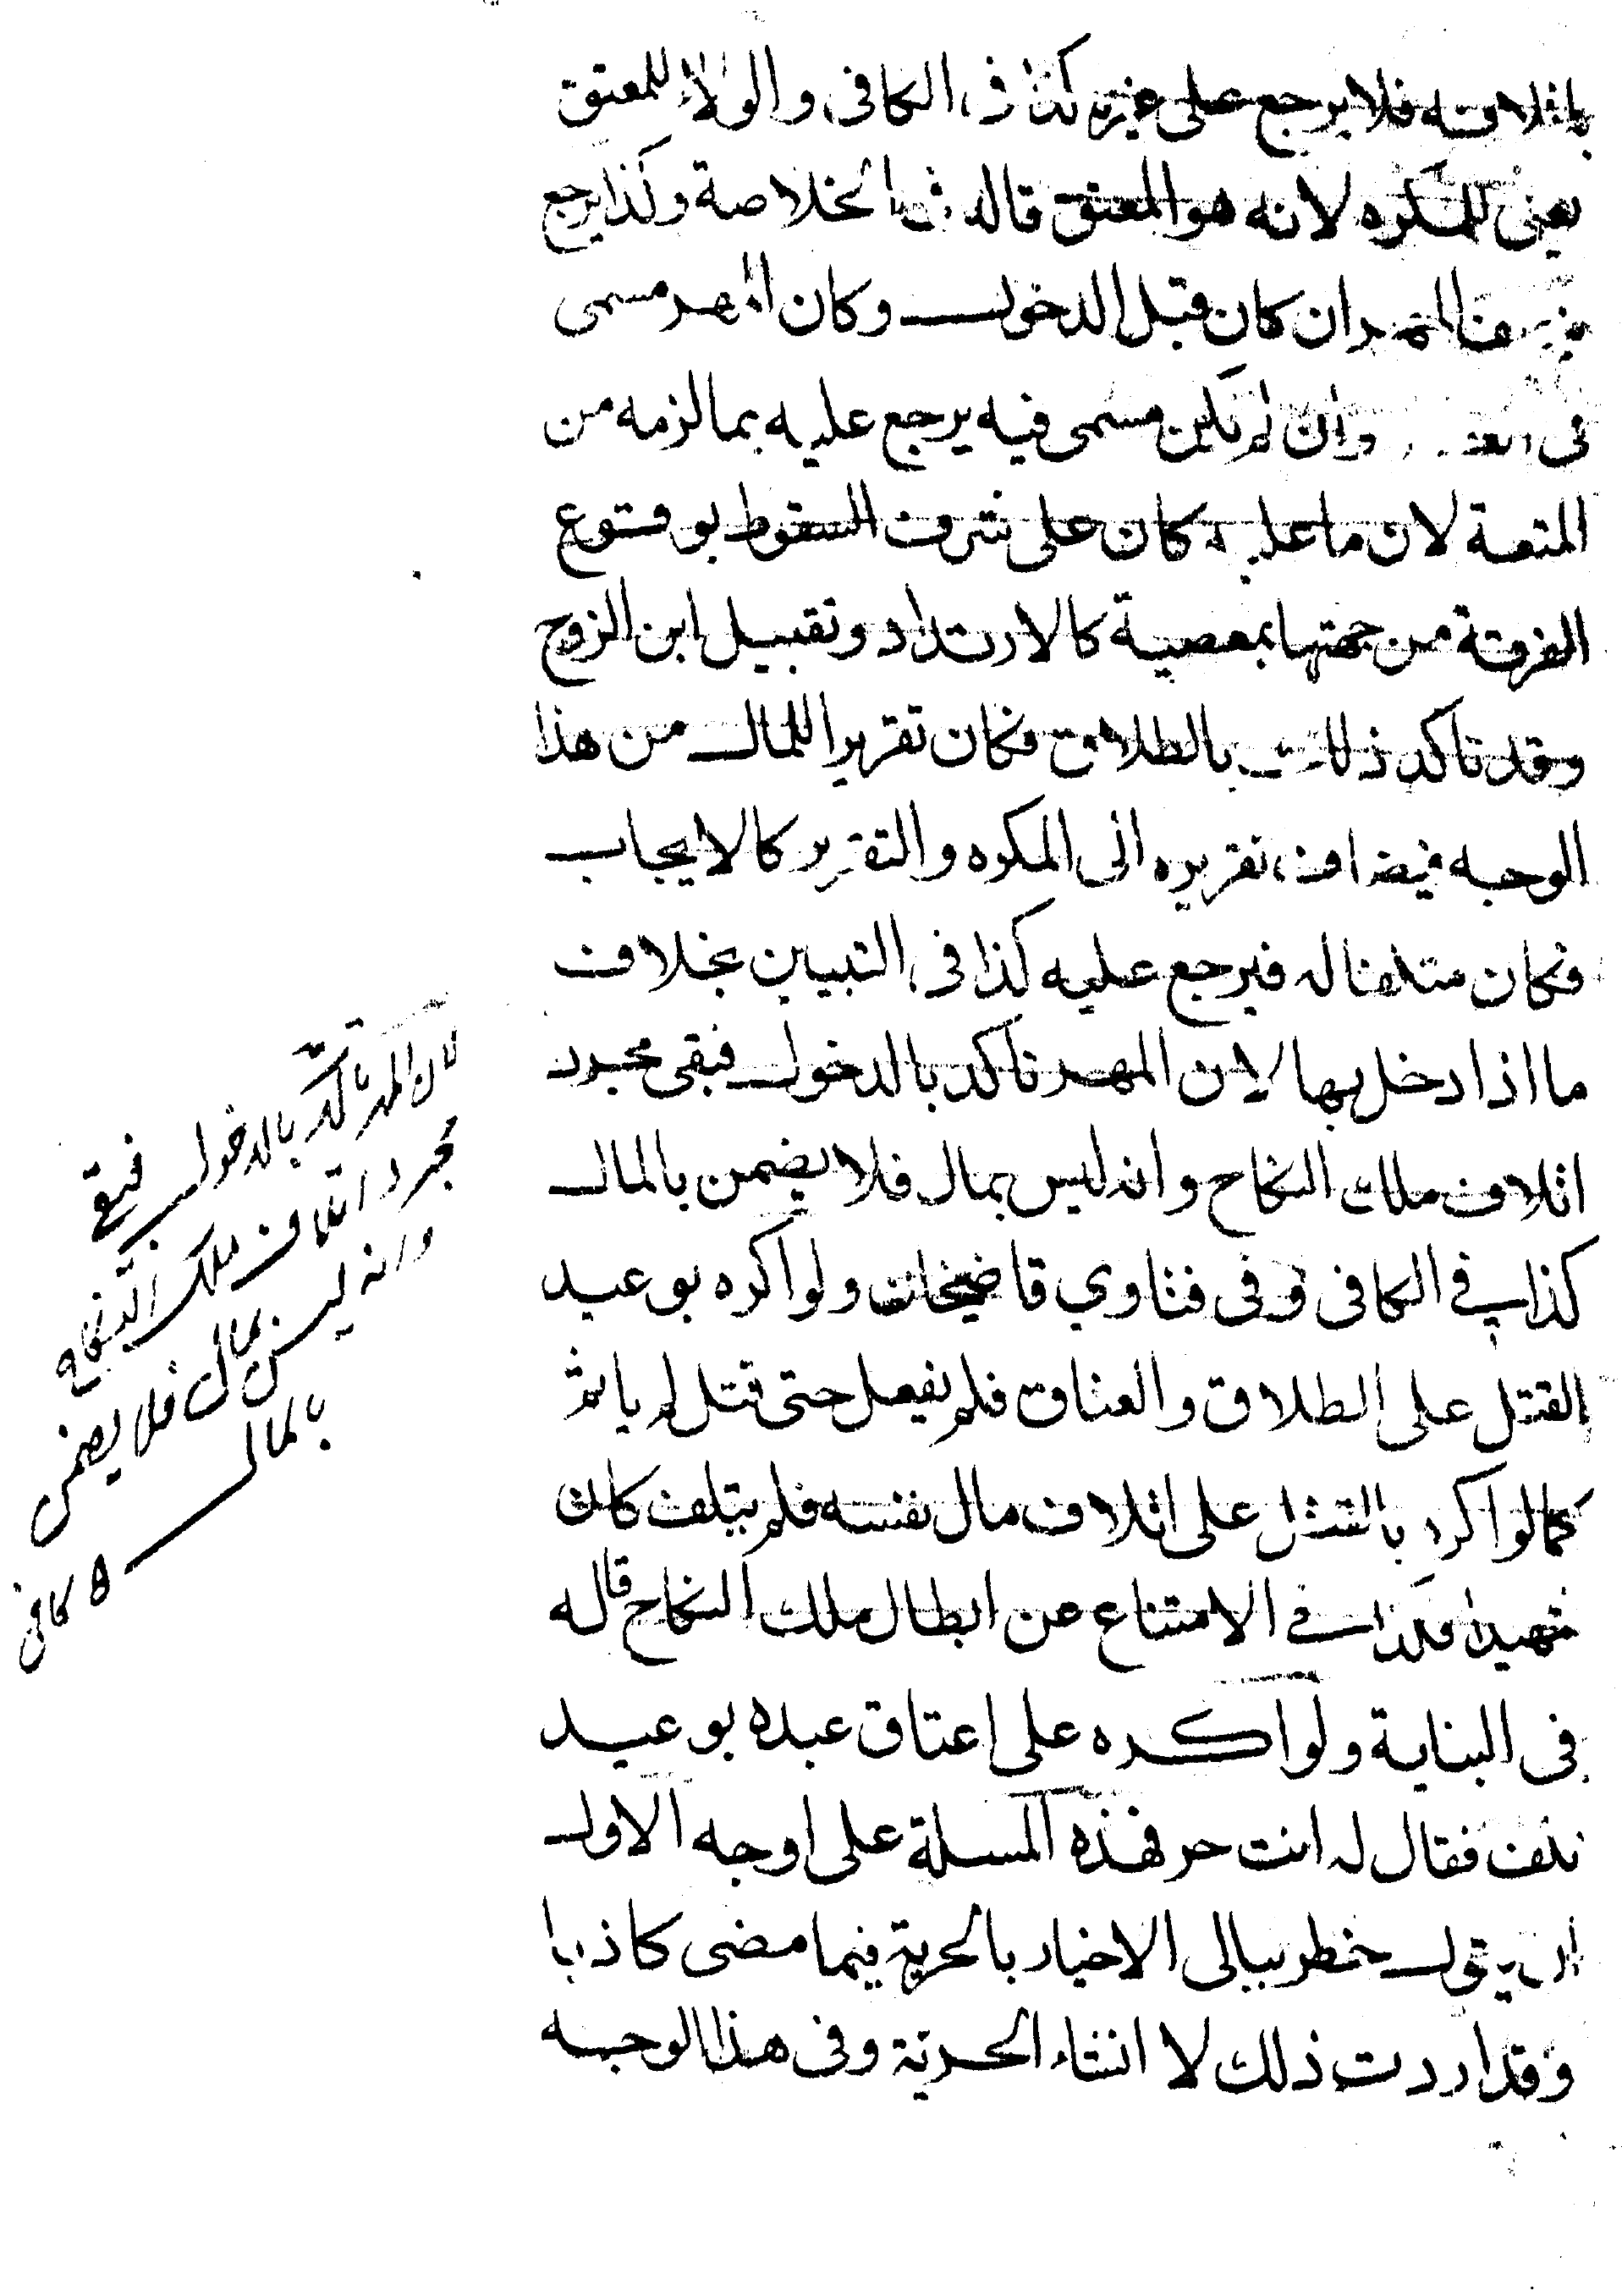 باتلافه فلا يرجع على غيره كذا في الكافى والولاء للمعتق
يعنى للمكره لانه هو المعتق قاله في الخلاصة وكذا يرجع
بنصف المهر ان كان قبل الدخول وكان المهر مسمى
فى وان لم يكن مسمى فيه يرجع عليه بما لزمه من
المتعة لان ما عليه كان على شرف السقوط بوقوع
الفرقة من جهتها بمعصية كالارتداد وتقبيل ابن الزوج
وقد تاكد ذلك بالطلاق فكان تقريرا للمال من هذا
الوجه فيضاف تقريره الى المكره والتقرير كالايجاب
فكان متلفا له فيرجع عليه كذا فى التبيين بخلاف
ما اذا دخل بها لان المهر تاكد بالدخول فبقى مجرد
اتلاف ملك النكاح وانه ليس بمال فلا يضمن بالمال
كذا في الكافى وفى فتاوي قاضيخان ولو اكره بوعيد
القتل على الطلاق والعتاق فلم يفعل حتى قتل لم ياثم
كما لو اكره بالقتل على اتلاف مال نفسه فلم يتلف كان
شهيدا فكذا في الامتناع عن ابطال ملك النكاح قاله
فى البناية ولو اكره على اعتاق عبده بوعيد
تلف فقال له انت حر فهذه المسلة على اوجه الاول
ان يقول خطر ببالى الاخبار بالحرية فيما مضى كاذبا
وقد اردت ذلك لا انشاء الحرية وفى هذا الوجه
لان المهر تاكد بالدخول فبقى
مجرد اتلاف ملك النكاح
وانه ليس بمال فلا يضمن
بالمال
ه كافى